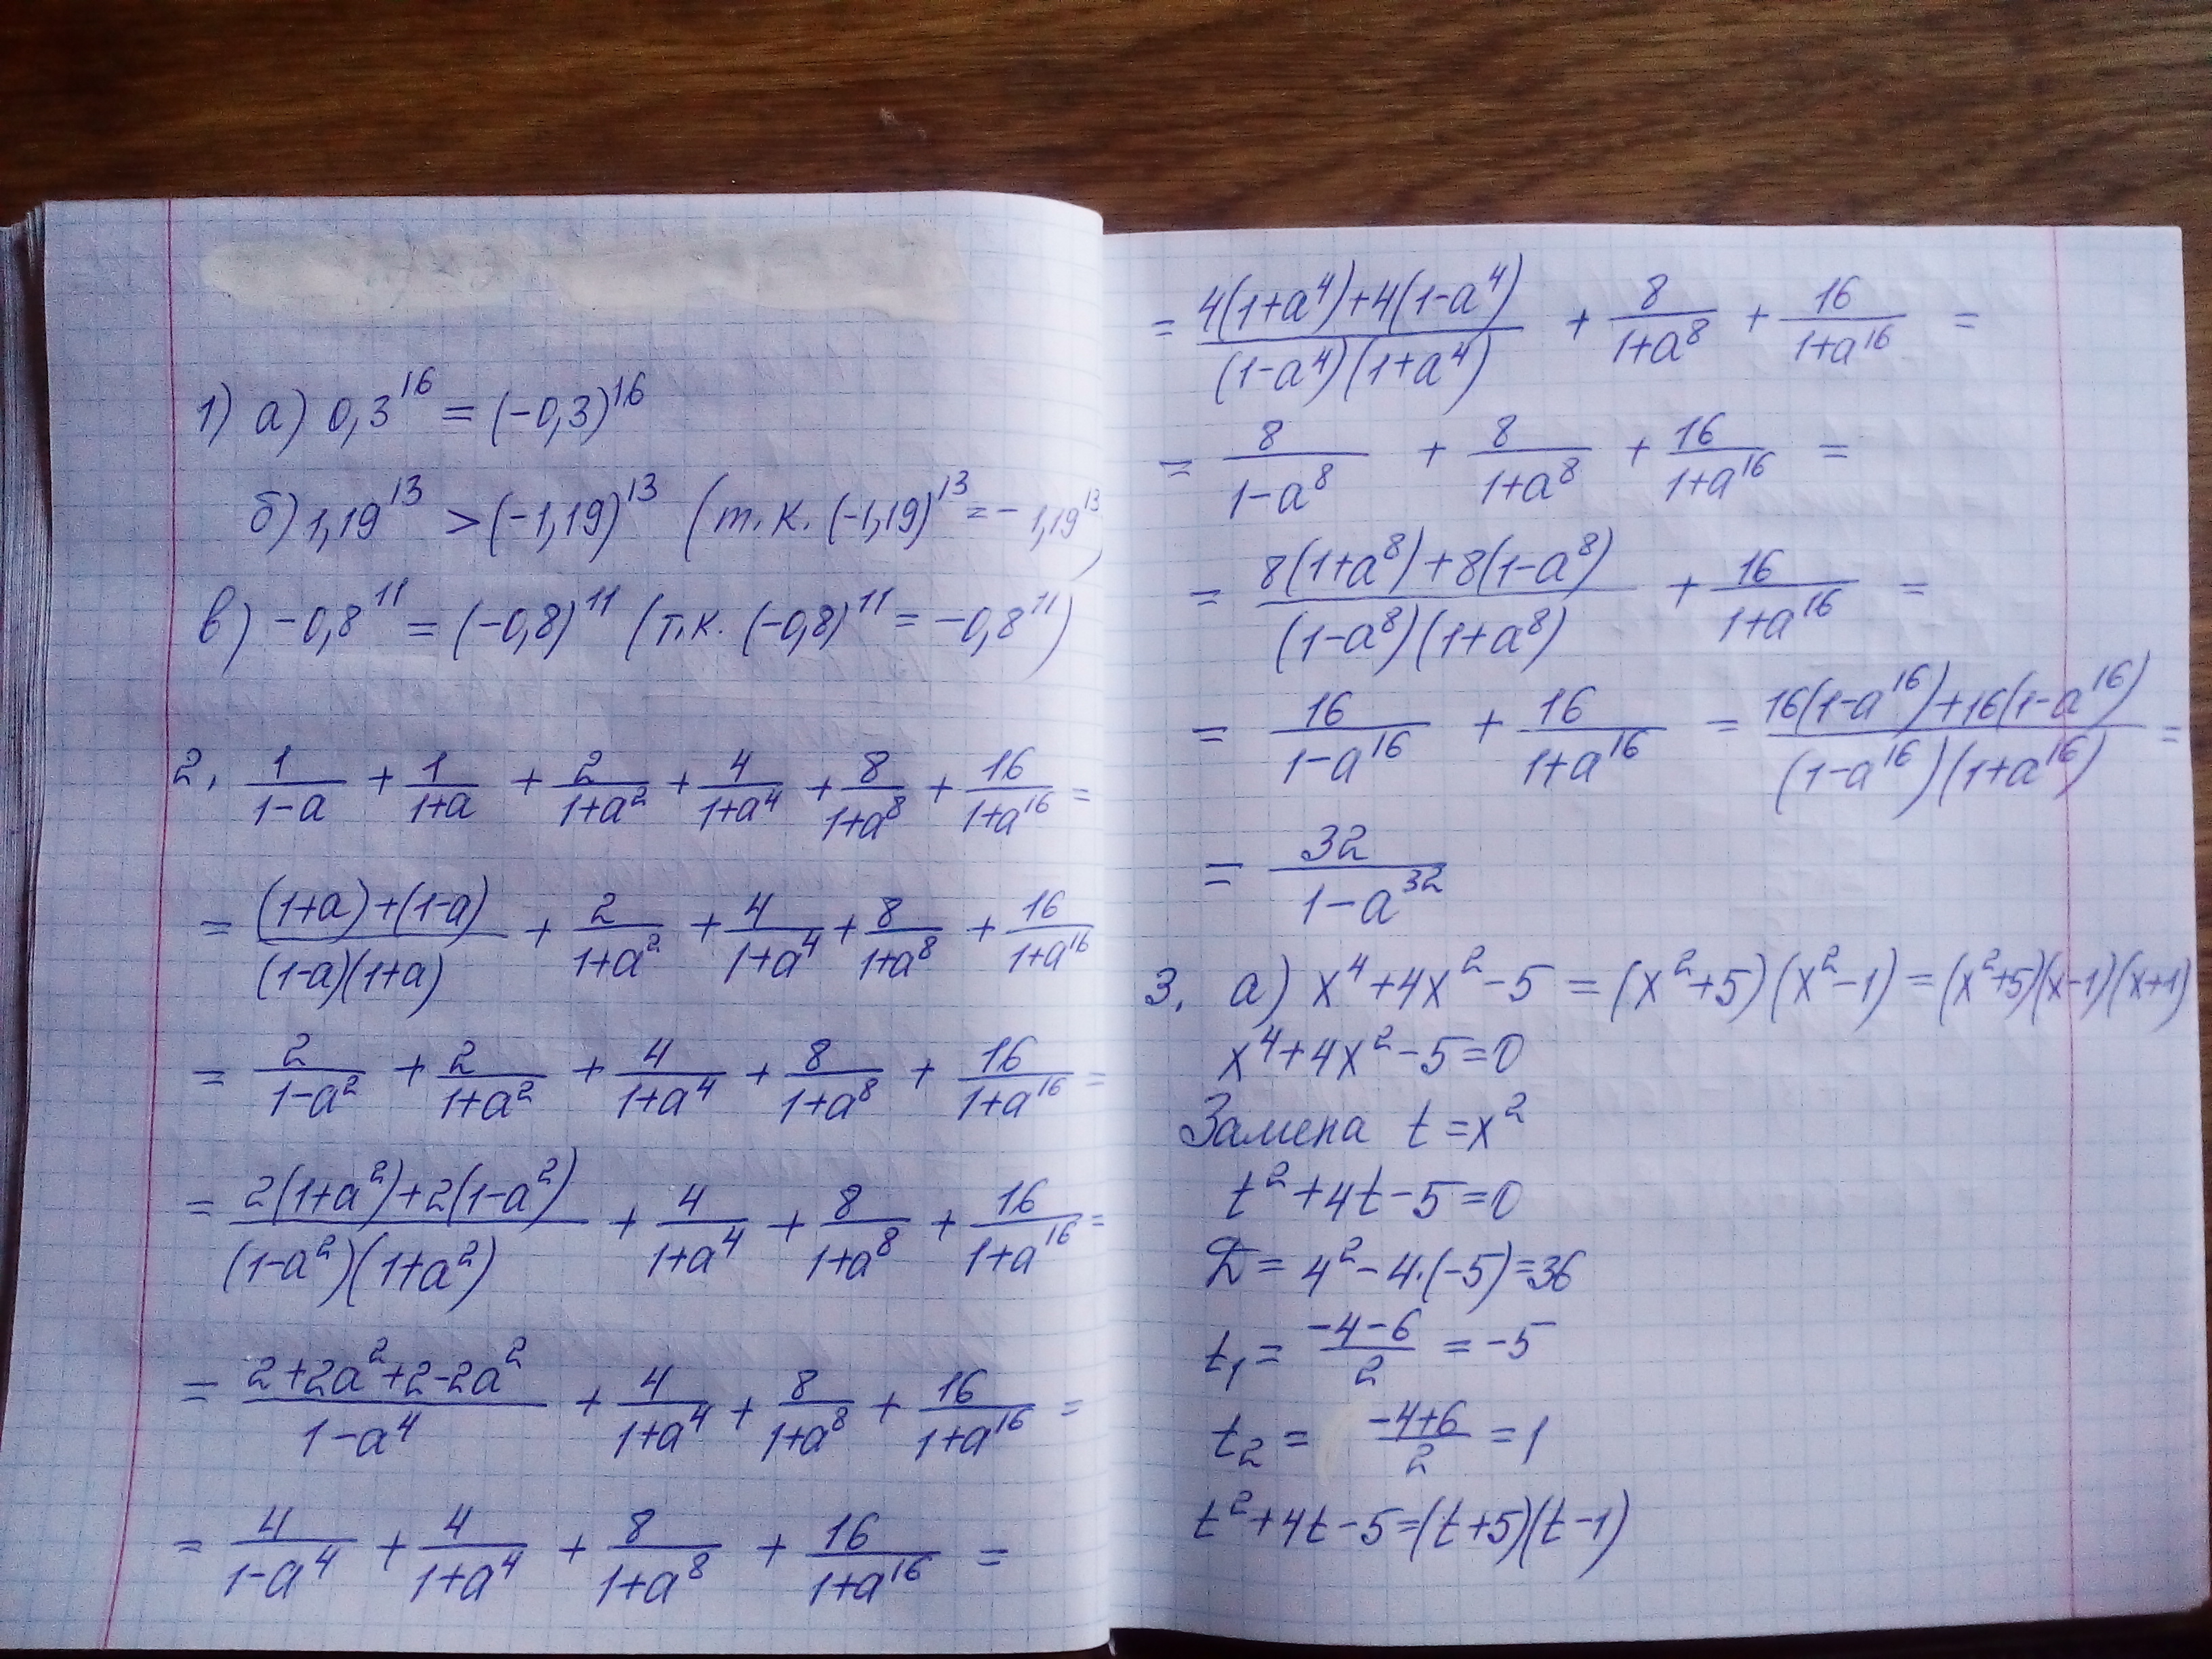 1) а) 0,3^16 = (-0,3)^16
б) 1,19^13 > (-1,19)^13 (т.к. (-1,19)^13 = - 1,19^13)
в) -0,8^11 = (-0,8)^11 (т.к. (-0,8)^11 = -0,8^11)
2. 1/(1-a) + 1/(1+a) + 2/(1+a^2) + 4/(1+a^4) + 8/(1+a^8) + 16/(1+a^16) =
= ((1+a)+(1-a))/((1-a)(1+a)) + 2/(1+a^2) + 4/(1+a^4) + 8/(1+a^8) + 16/(1+a^16)
= 2/(1-a^2) + 2/(1+a^2) + 4/(1+a^4) + 8/(1+a^8) + 16/(1+a^16) =
= (2(1+a^2)+2(1-a^2))/((1-a^2)(1+a^2)) + 4/(1+a^4) + 8/(1+a^8) + 16/(1+a^16) =
= (2+2a^2+2-2a^2)/(1-a^4) + 4/(1+a^4) + 8/(1+a^8) + 16/(1+a^16) =
= 4/(1-a^4) + 4/(1+a^4) + 8/(1+a^8) + 16/(1+a^16) =
= (4(1+a^4)+4(1-a^4))/((1-a^4)(1+a^4)) + 8/(1+a^8) + 16/(1+a^16) =
= 8/(1-a^8) + 8/(1+a^8) + 16/(1+a^16) =
= (8(1+a^8)+8(1-a^8))/((1-a^8)(1+a^8)) + 16/(1+a^16) =
= 16/(1-a^16) + 16/(1+a^16) = (16(1-a^16)+16(1-a^16))/((1-a^16)(1+a^16)) =
= 32/(1-a^32)
3. а) x^4+4x^2-5 = (x^2+5)(x^2-1) = (x^2+5)(x-1)(x+1)
x^4+4x^2-5=0
Замена t=x^2
t^2+4t-5=0
D = 4^2-4·(-5)=36
t₁ = (-4-6)/2 = -5
t₂ = (-4+6)/2 = 1
t^2+4t-5=(t+5)(t-1)